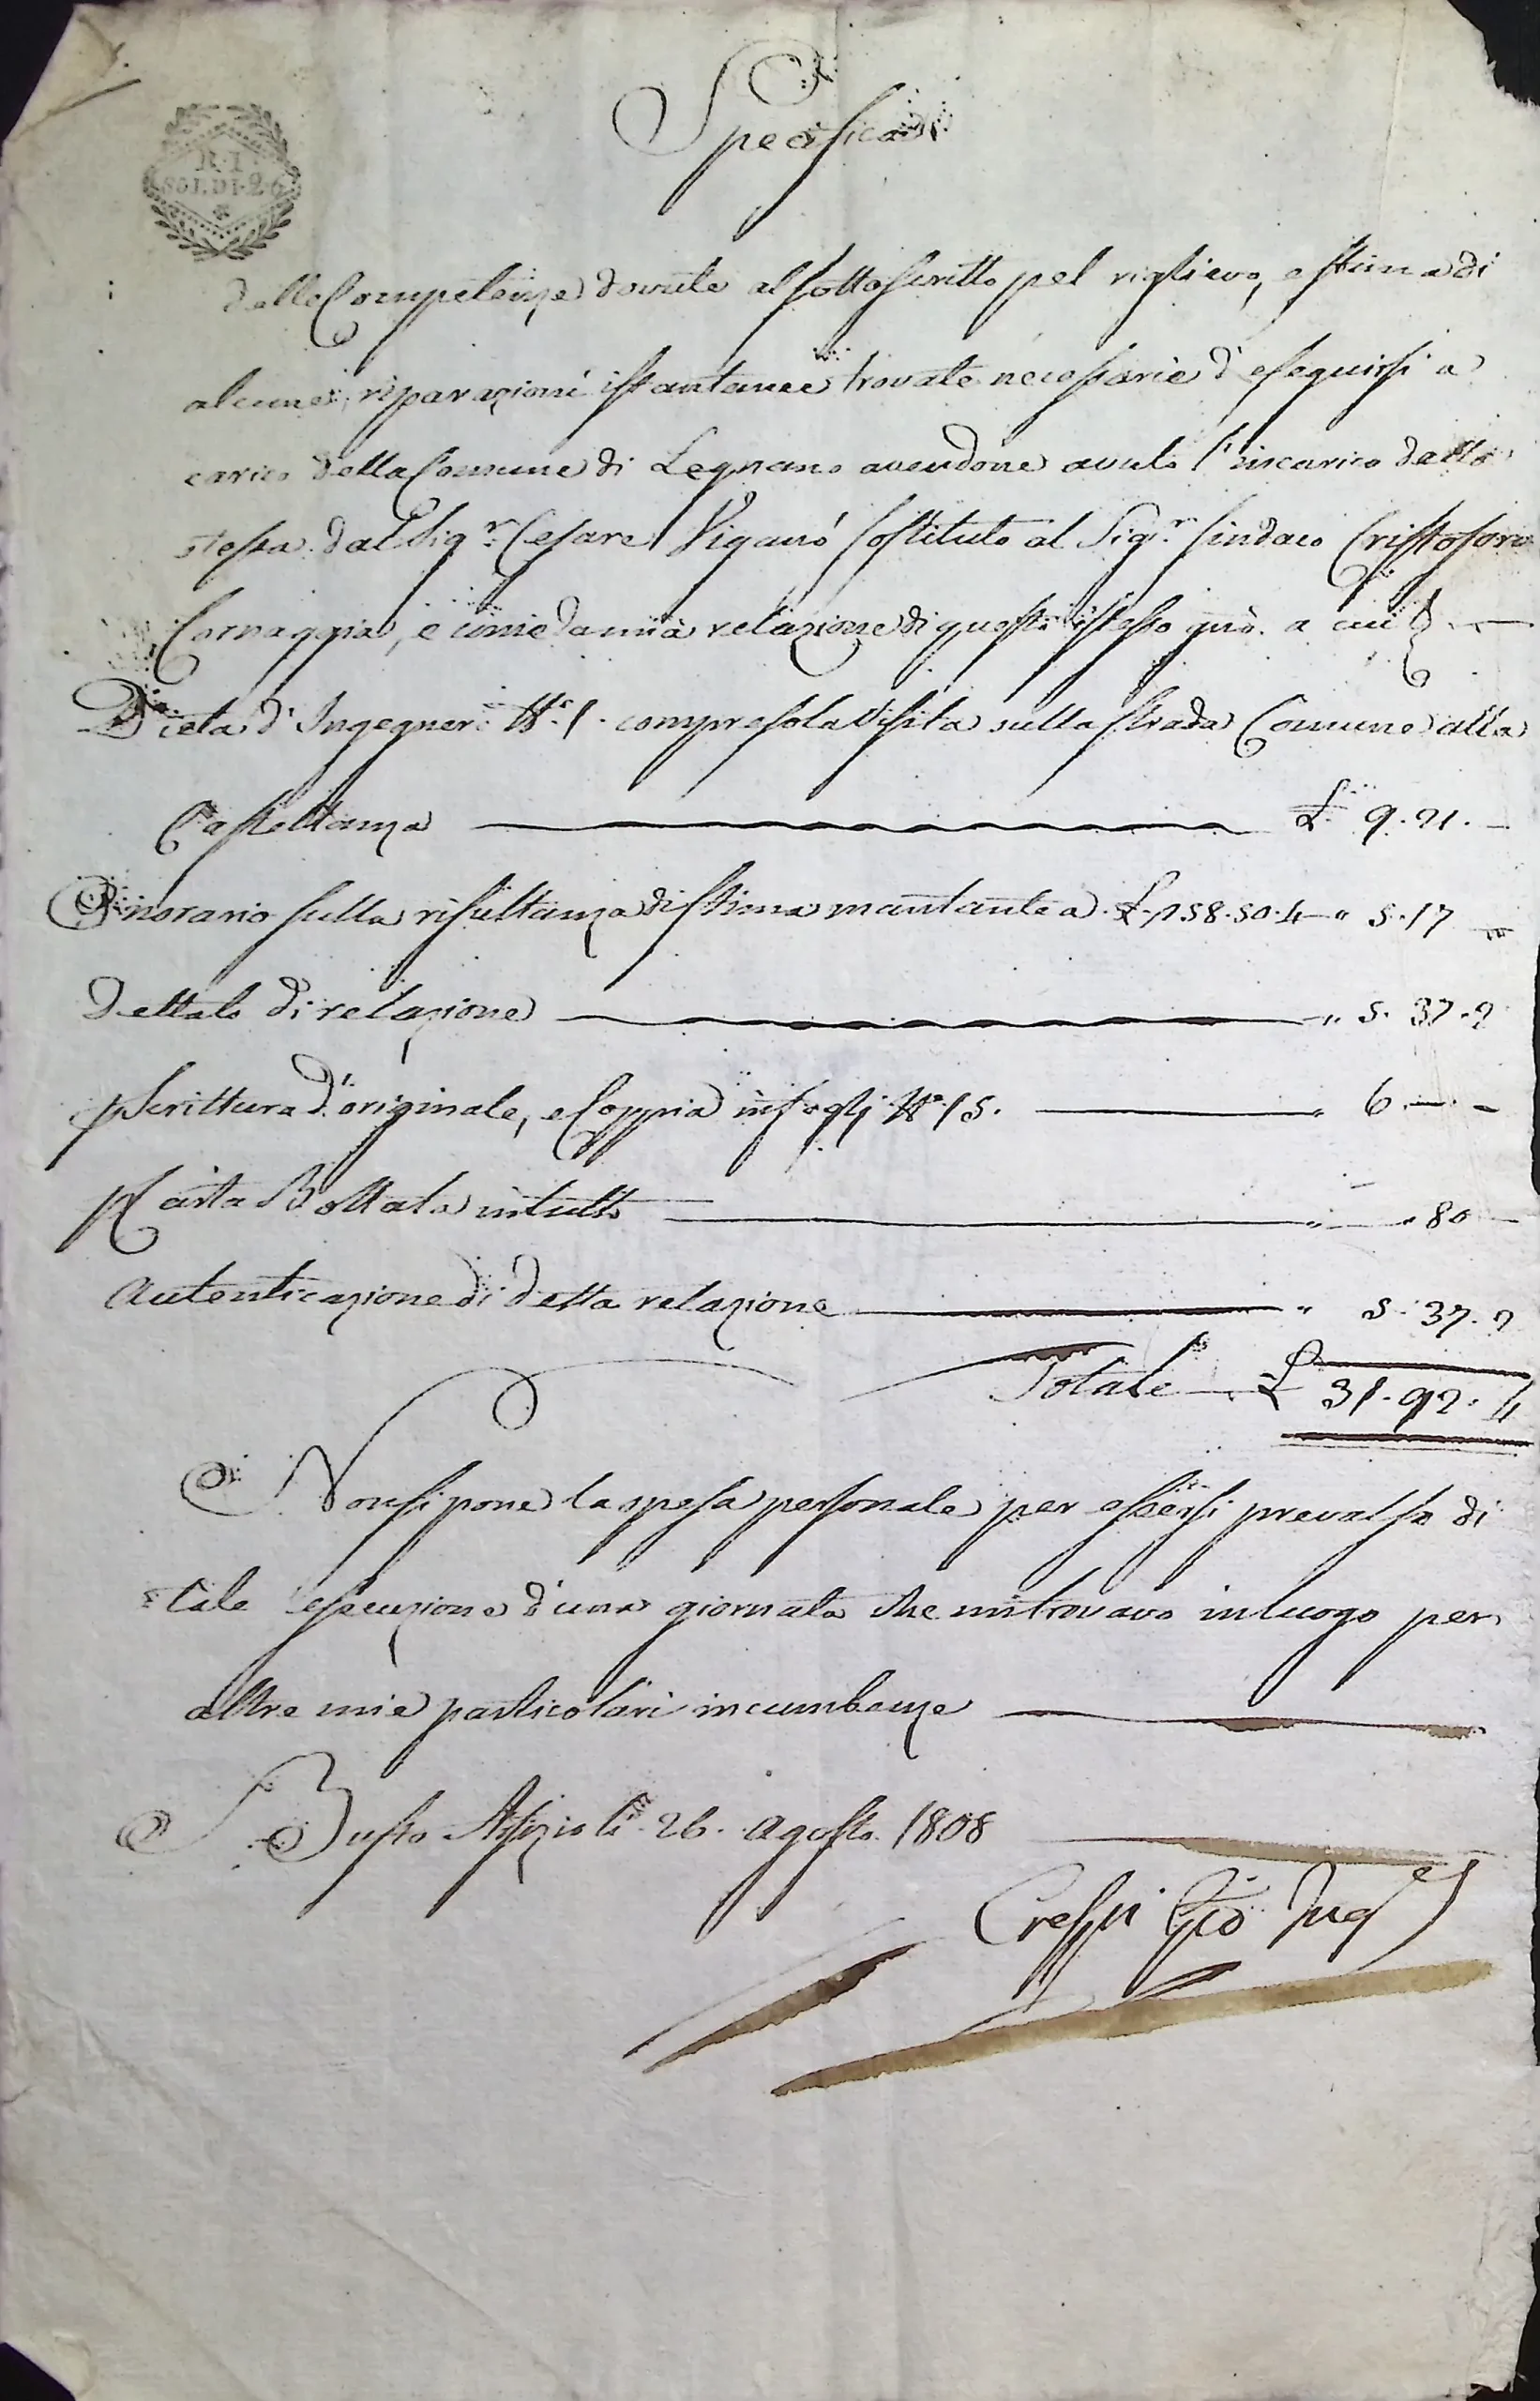 R. I.
SOLDI. 26
Specifica
delle Competenze dovute al sottoscritto pel riglievo, e stima di
alcune riparazioni istantanee trovate necessarie d'eseguirsi a
carico della Comune di Legnano avendone avuto l'incarico dalla
stessa dal Sigr. Cesare Viganò sostituto al Sigr. Sindaco Cristoforo
Cornaggia, e come da mia relazione di questo istesso gno. a cui
Dieta d'Ingegnere No. 1. compresa la visita sulla strada Comune alla
Castellanza £ 9.21.
Onorario sulla risultanza di stima montante a £. 158.50.4 " 5.17
Dettato di relazione " 5.37.2
Scrittura d'originale, e Coppia in fogli No. 15. " 6.
Carta Bollata in tutto " 80
Autenticazione di detta relazione " 5.37.2
Totale £ 31.92.4
Non si pone la spesa personale per essersi prevalso di
tale esecuzione d'una giornata che mi trovavo in luogo per
altre mie particolari incumbenze
Busto Arsizio li 26. Agosto 1808
Crespi Gio Ingr